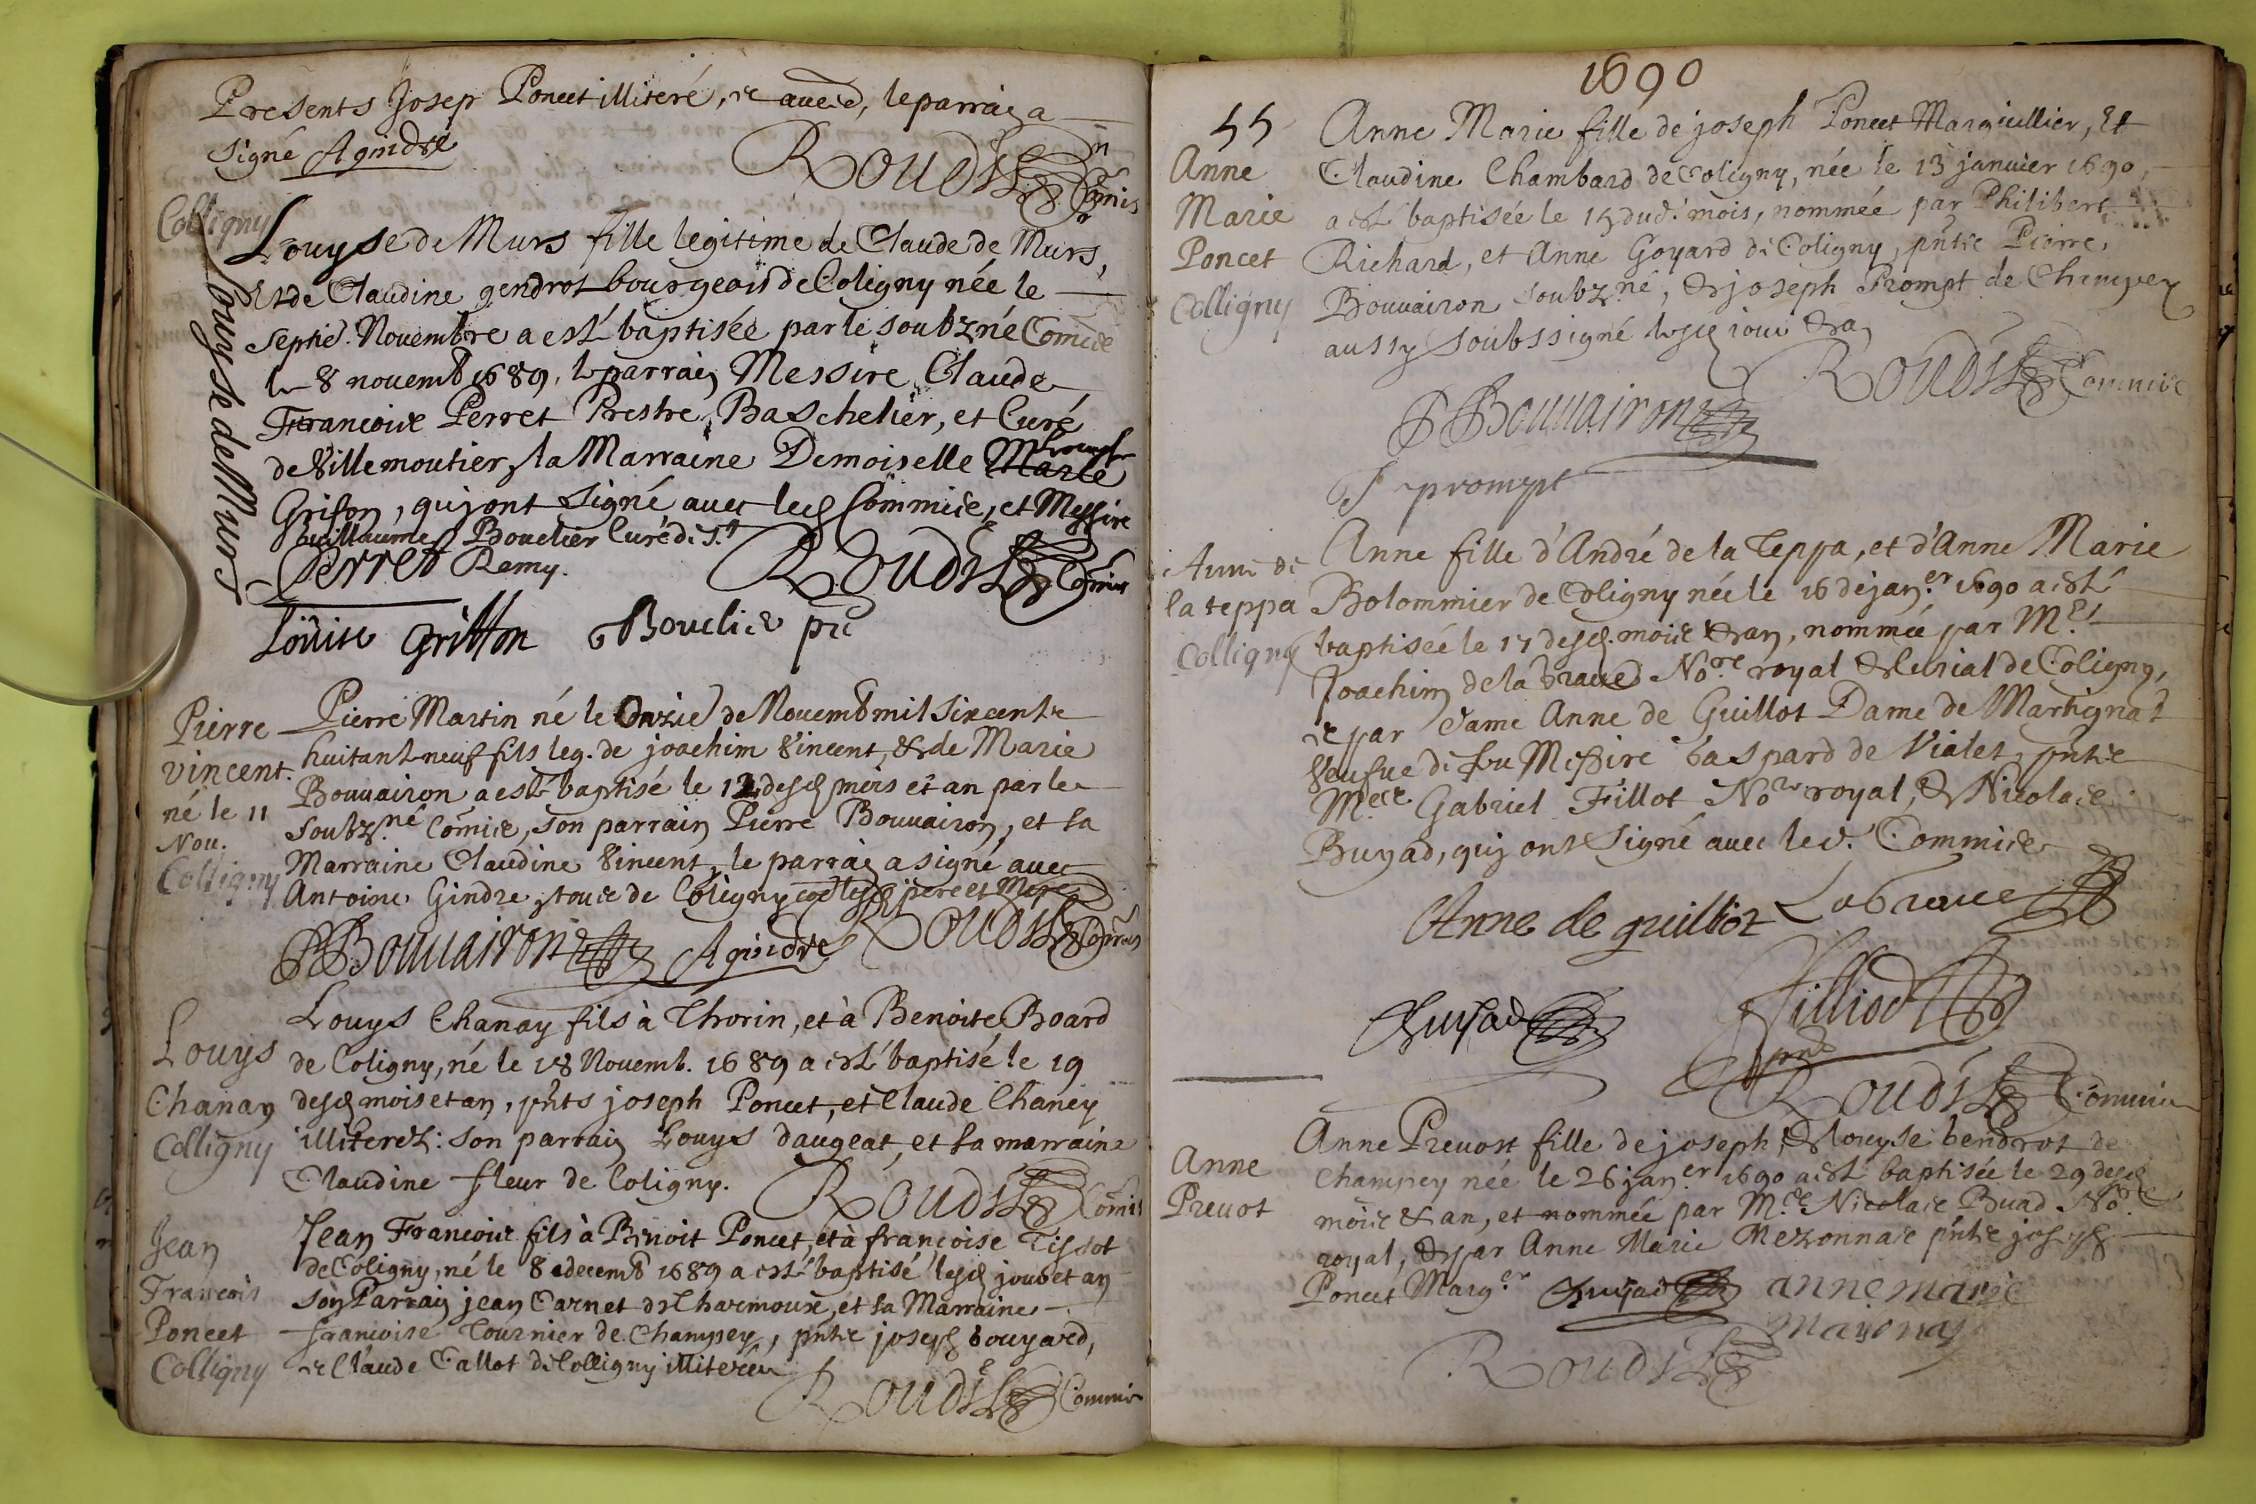 Presents Josep Poncet illiteré, et avec, le parrain a
signé AGindre
Roudil Comis
Colligny
Louyse de Murs
Louyse de Murs fille legitime de Claude de Murs,
Et de Claudine gendrot bourgeois de Coligny née le
septie. Novembre a esté baptisée par le soubzné Comis
le 8 novemb 1689, le parrain Messire Claude
Francois Perret Prestre, Baschelier, et Curé
de Villemoutier, la Marraine Demoiselle Marie Louyse
Grifon, qui ont signé avec led Commis, et Messire
Guillaume Bouclier Curé de St
Remy.
Perret
Roudil Comis
Louise Griffon Bouclier
Pierre
vincent.
né le 11
Nov.
Colligny
Pierre Martin né le Onzie de Novemb mil six cents
huitant neuf fils leg. de joachim Vincent, & de Marie
Bouvairon a esté baptisé le 12 desd mois et an par le
soubz.né Comis, son parrain Pierre Bouvairon, et sa
Marraine Claudine Vincent, le parrain a signé avec
Antoine Gindre, tous de Coligny lesd pere et Mere
PBouvairon AGindre Roudil Comis
Louys
Chanay
Colligny
Louys Chanay fils à Thorin, et à Benoite Board
de Coligny, né le 18 Novemb. 1689 a esté baptisé le 19
desd mois et an, pnts joseph Poncet, et Claude Chaney
illiterez: son parrain Louys daugeat, et sa marraine
Claudine fleur de Coligny.
Roudil Comis
Jean
Francois
Poncet
Colligny
Jean Francois fils à Benoit Poncet, et à francoise Tissot
de Coligny, né le 8 decemb 1689 a esté baptisé lesd jour et an
son Parrain jean Carnet de Charmoux, et sa Marraine
francoise Tournier de Champey, pnts joseph bouyard,
et Claude Callot de Colligny illiterés
Roudil Commis
1690
55
Anne
Marie
Poncet
Colligny
Anne Marie fille de joseph Poncet Marguillier, Et
Claudine Chambard de Coligny, née le 13 janvier 1690,
a esté baptisée le 15 dud. mois, nommée par Philibert
Richard, et Anne Goyard de Coligny, pnts Pierre
Bouvairon soubz.né, & joseph Prompt de Champey
aussy soubssigné lesd jour & an
Roudil Commis
PBouvairon
J prompt
Anne de
la teppa
Colligny
Anne fille d'André de la Teppa, et d'Anne Marie
Bolommier de Coligny née le 16 de jan.er 1690 a esté
baptisée le 17 desd. mois & an, nommée par M.e
Joachim de la brave No.re royal & Curial de Coligny,
et par dame Anne de Guillot Dame de Martignat
Veufve de feu Messire Gaspard de Vialet, pnts
M.es Gabriel Fillot No.re royal, & Nicolas
Buyad, qui ont signé avec led. Commis
Anne de guillot Labrave
Buyad Filliod
pnt
Roudil Commis
Anne
Prevot
Anne Prevost fille de joseph, & louyse Gendrot de
Champey née le 26 jan.er 1690 a esté baptisée le 29 desd
mois & an, et nommée par M.e Nicolas Buad No.re
royal, & par Anne Marie Mezonnas pnts joseph
Poncet Marg.er Buyad anne marie
mayonas
Roudil